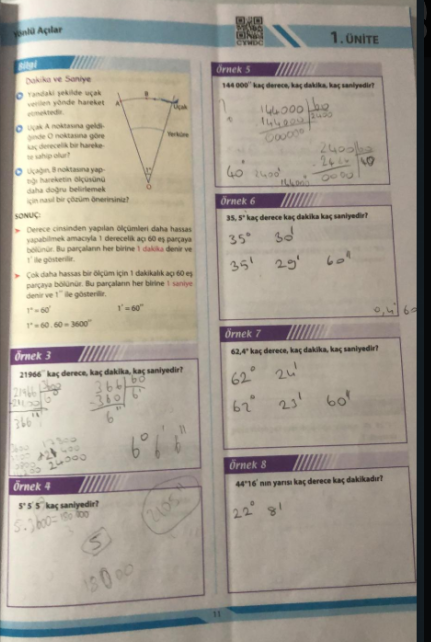 Yönlü Açılar
CYMDC
1. ÜNİTE
Bilgi
Dakika ve Saniye
Yandaki şekilde uçak
verilen yönde hareket
etmektedir.
Uçak A noktasına geldi-
ğinde O noktasına göre
kaç derecelik bir hareke-
te sahip olur?
Uçağın, B noktasına yap-
tığı hareketin ölçüsünü
daha doğru belirlemek
için nasıl bir çözüm önerirsiniz?
A
B
Uçak
Yerküre
O
SONUÇ:
Derece cinsinden yapılan ölçümleri daha hassas
yapabilmek amacıyla 1 derecelik açı 60 eş parçaya
bölünür. Bu parçaların her birine 1 dakika denir ve
1' ile gösterilir.
Çok daha hassas bir ölçüm için 1 dakikalık açı 60 eş
parçaya bölünür. Bu parçaların her birine 1 saniye
denir ve 1'' ile gösterilir.
1° = 60'
1' = 60''
1° = 60 . 60 = 3600''
Örnek 3
21966'' kaç derece, kaç dakika, kaç saniyedir?
366''
366 60
360 6'
6''
24000
6° 6' 6''
Örnek 4
5° 5' 5'' kaç saniyedir?
5
Örnek 5
144 000'' kaç derece, kaç dakika, kaç saniyedir?
144000 60
144000 2400
000000
2400 60
40
0000
40° 2400' 144000''
Örnek 6
35, 5° kaç derece kaç dakika kaç saniyedir?
35° 30'
35' 29' 60''
0,4' 60
Örnek 7
62,4° kaç derece, kaç dakika, kaç saniyedir?
62° 24'
62° 23' 60''
Örnek 8
44°16' nın yarısı kaç derece kaç dakikadır?
22° 8'
11